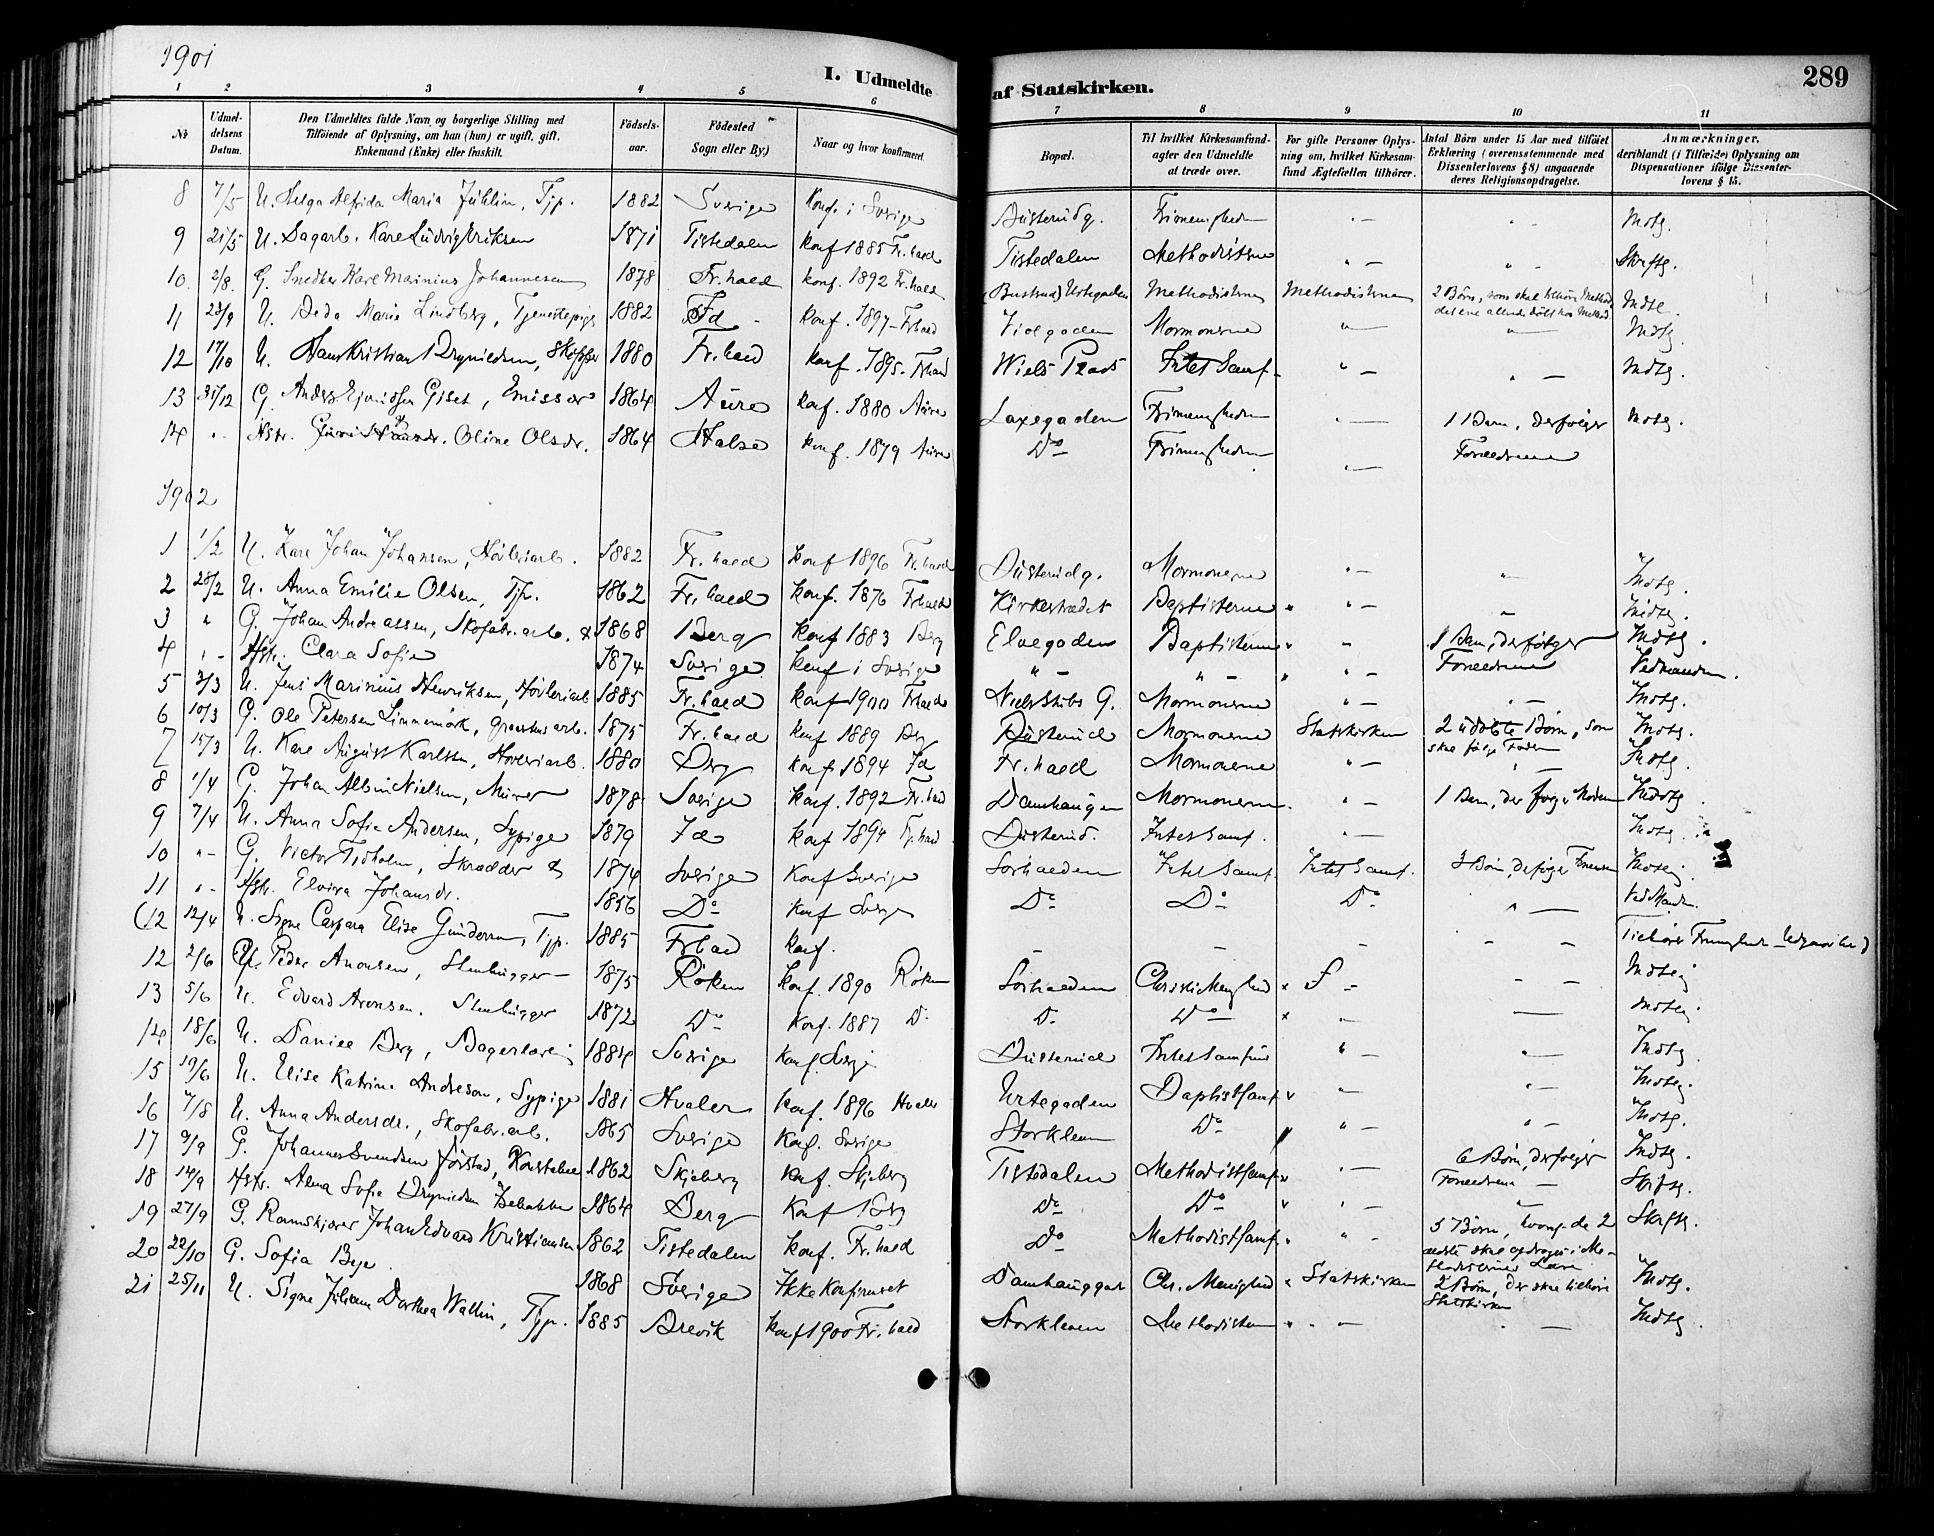 1901
I. Udmeldte af Statskirken.
289
1 2 3 4 5 6 7 8 9 10 11
No
Udmeldelsens Datum.
Den Udmeldtes fulde Navn og borgerlige Stilling med Tilføiende af Oplysning, om han (hun) er ugift, gift, Enkemand (Enke) eller fraskilt.
Fødselsaar.
Fødested Sogn eller By)
Naar og hvor konfirmeret.
Bopæl.
Til hvilket Kirkesamfund agter den Udmeldte at træde over.
For gifte Personer Oplysning om, hvilket Kirkesamfund Ægtefællen tilhører.
Antal Børn under 15 Aar med tilføiet Erklæring (overensstemmende med Dissenterlovens § 8) angaaende deres Religionsopdragelse.
Anmærkninger, deriblandt (i Tilfælde) Oplysning om Dispensationer ifølge Dissenterlovens § 15.
8 7/5 U. Helga Alfrida Maria Juhlin, Tjp. 1882 Sverige Konf. i Sverige Busterudg. Frimenigheden " — " — Mdtg.
9 21/5 U. Dagarb. Karl Ludvig Eriksen 1871 Tistedalen konf 1885 Fr.hald Tistedalen Methodisterne " — " — Skrftg.
10. 2/8. G. Smedker Karl Marinius Johannesen 1878 Fr.hald konf. 1892 Fr.hald (Busterud) Urtegaden Methodisterne Methodisterne 2 Børn, som skal tilhøre Method. det ene allerede døbt hos Method. Mdtl.
11 23/9 U. Beda Maria Lindberg, Tjenestepige 1882 Id - konf. 1897 Frhald Violgaden Mormonerne " — " — Mdtg.
12 17/10 U. Hans Kristian Brynildsen, Skipper 1880 Fr.hald konf. 1895. Frhald Niels Plads Intet Samf. " — " — Mdtg.
13 31/12 G. Anders Ejvindsen Giset, Emissær 1864 Aure konf. 1880 Aure Laxegaden Frimenigheden " — 1 Barn, der følger Mdtg.
14 " - Hstr. Oline Olsdr. 1864 Halse konf. 1879 Aure Do Frimenigheden " — Forældrene
1902
1 1/2 U. Karl Johan Johansen, Høvleriarb. 1882 Fr.hald konf 1896 Fr.hald Busterudg. Mormonerne " — " Mdtg.
2 28/2 U. Anna Emilie Olsen, Tjp. 1862 Fr.hald konf. 1876 Frhald Kirkestrædet Baptisterne " " — " Mdtg.
3 " G. Johan Andreassen, Skofabr.arb. & 1868 Berg konf 1883 Berg Elvegaden Baptisterne " " 1 Barn, der følger Mdtg.
4 " - Hstr. Clara Sofie 1874 Sverige konf i Sverige " — " — " " — Forældrene Ved manden.
5 3/3 U. Jens Marinius Henriksen, Høvleriarb 1885 Fr.hald konf 1900 Frhald Niels Stubs G. Mormonerne " — " — Mdtg.
6 10/3 G. Ole Petersen Linnemørk, arb. 1875 Fr.hald konf 1889 Berg Busterud Mormonerne Statskirken 2 udøbte Børn, som skal følge Faderen Mdtg.
7 15/3 U. Karl August Karlsen, Høvleriarb. 1880 Berg konf 1894 Id Fr.hald Mormonerne " — " — Mdtg.
8 1/4 G. Johan Albin Nielsen, Murer 1878 Sverige konf. 1892 Fr.hald Damhaugen Mormonerne. " — 1 Barn, der følger Moderen Mdtg.
9 7/4 U. Anna Sofie Andersen, Sypige 1879 Id konf 1894 Fr.hald Busterud. Intet Samf. " — Mdtg.
10 " - G. Victor Tisholm, Skrædder & 1874 Sverige Konf Sverige Sørhalden Intet Samf. Intet Samf. 3 Børn, de følger Mdtg.
11 " - Hstr. Elvira Johansdr. 1856 Do konf Sverige Do Do Do " — Ved Manden.
(12 12/4 U. Signe Caspara Elise Gundersen, Tjp. 1885 Frhald konf. — — — — — Tilhører Frimenighed )
12 2/6 Peder Aronsen, Stenhugger — 1875 Røken konf. 1890 Røken Sørhalden Christi Menighed " — — Mdtg
13 5/6 U. Edvard Aronsen. Stenhugger 1872 Do konf. 1887 Do Do Do " — Mdtg
14 18/6 U. Daniel Berg, Bagerlærling 1884 Sverige Konf. Sverige Busterud Intet Samfund " — " — Mdtg.
15 19/6 U. Elise Katrine Andresen, Sypige 1881 Hvaler konf. 1896 Hvaler Urtegaden Baptistsamf. " — " — Mdtg.
16 7/8 U. Anna Andersdr., Skofabr.arb. 1865 Sverige Konf. Sverige Storkleven Do " — " — Mdtg.
17 9/9 G. Johannes Svendsen Jørstad, Konstabel 1862 Skjeberg konf. Skjeberg Tistedalen Methodistsamf. " — 6 Børn, der følger Mdtg.
18 14/9 Hstr. Alma Sofie Brynildsen 1864 Berg Konf Berg Do Do " — Forældrene — Skriftg.
19 27/9 G. Ramskjærer Johan Edvard Kristiansen 1862 Tistedalen konf. Fr.hald Do Methodistsamf. " — 5 Børn, hvoraf de 2 ældste skal opdrages i Methodisternes Lære Skrftg.
20 22/10 G. Sofia Bye. 1868 Sverige Ikke konfirmeret Damhauggat Chr. Menighed " Statskirken 2 Børn, der skal tilhøre Statskirken Mdtg.
21 25/11 U. Signe Juliane Dorthea Wallin, Tjp. 1885 Brevik konf 1900 Fr.hald Storkleven Methodisterne " — " — Mdtg.